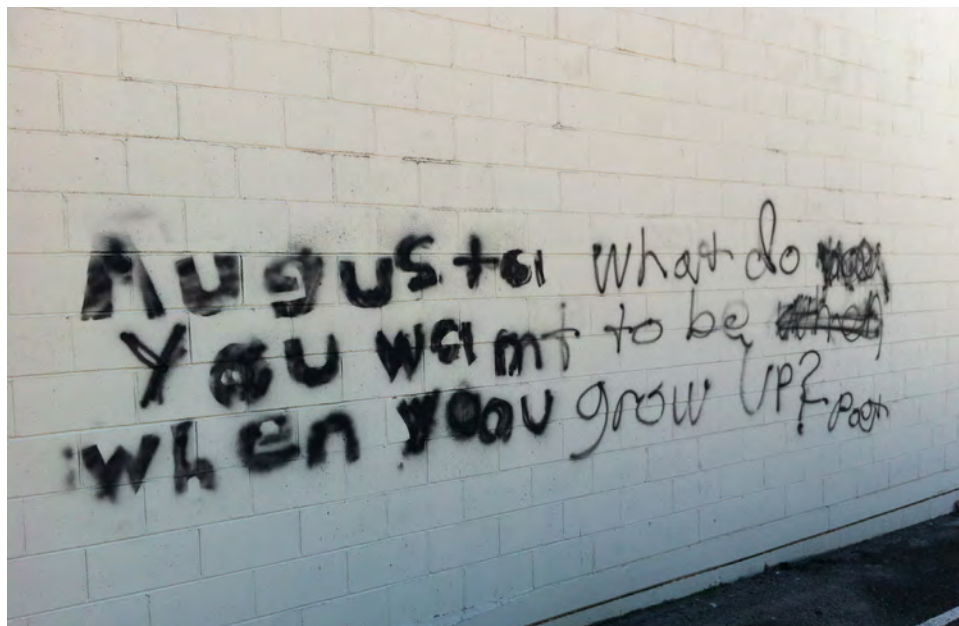 Augusta what do
You want to be
when you grow UP?